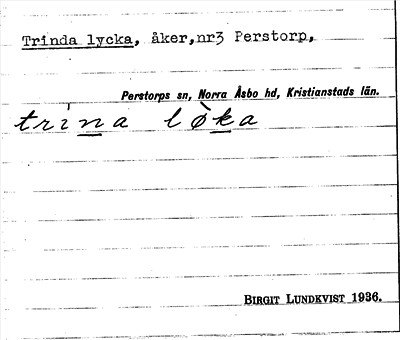 Trinda lycka, åker, nr3 Perstorp,
Perstorps sn, Norra Åsbo hd, Kristianstads län.
trina lòka
BIRGIT LUNDKVIST 1936.